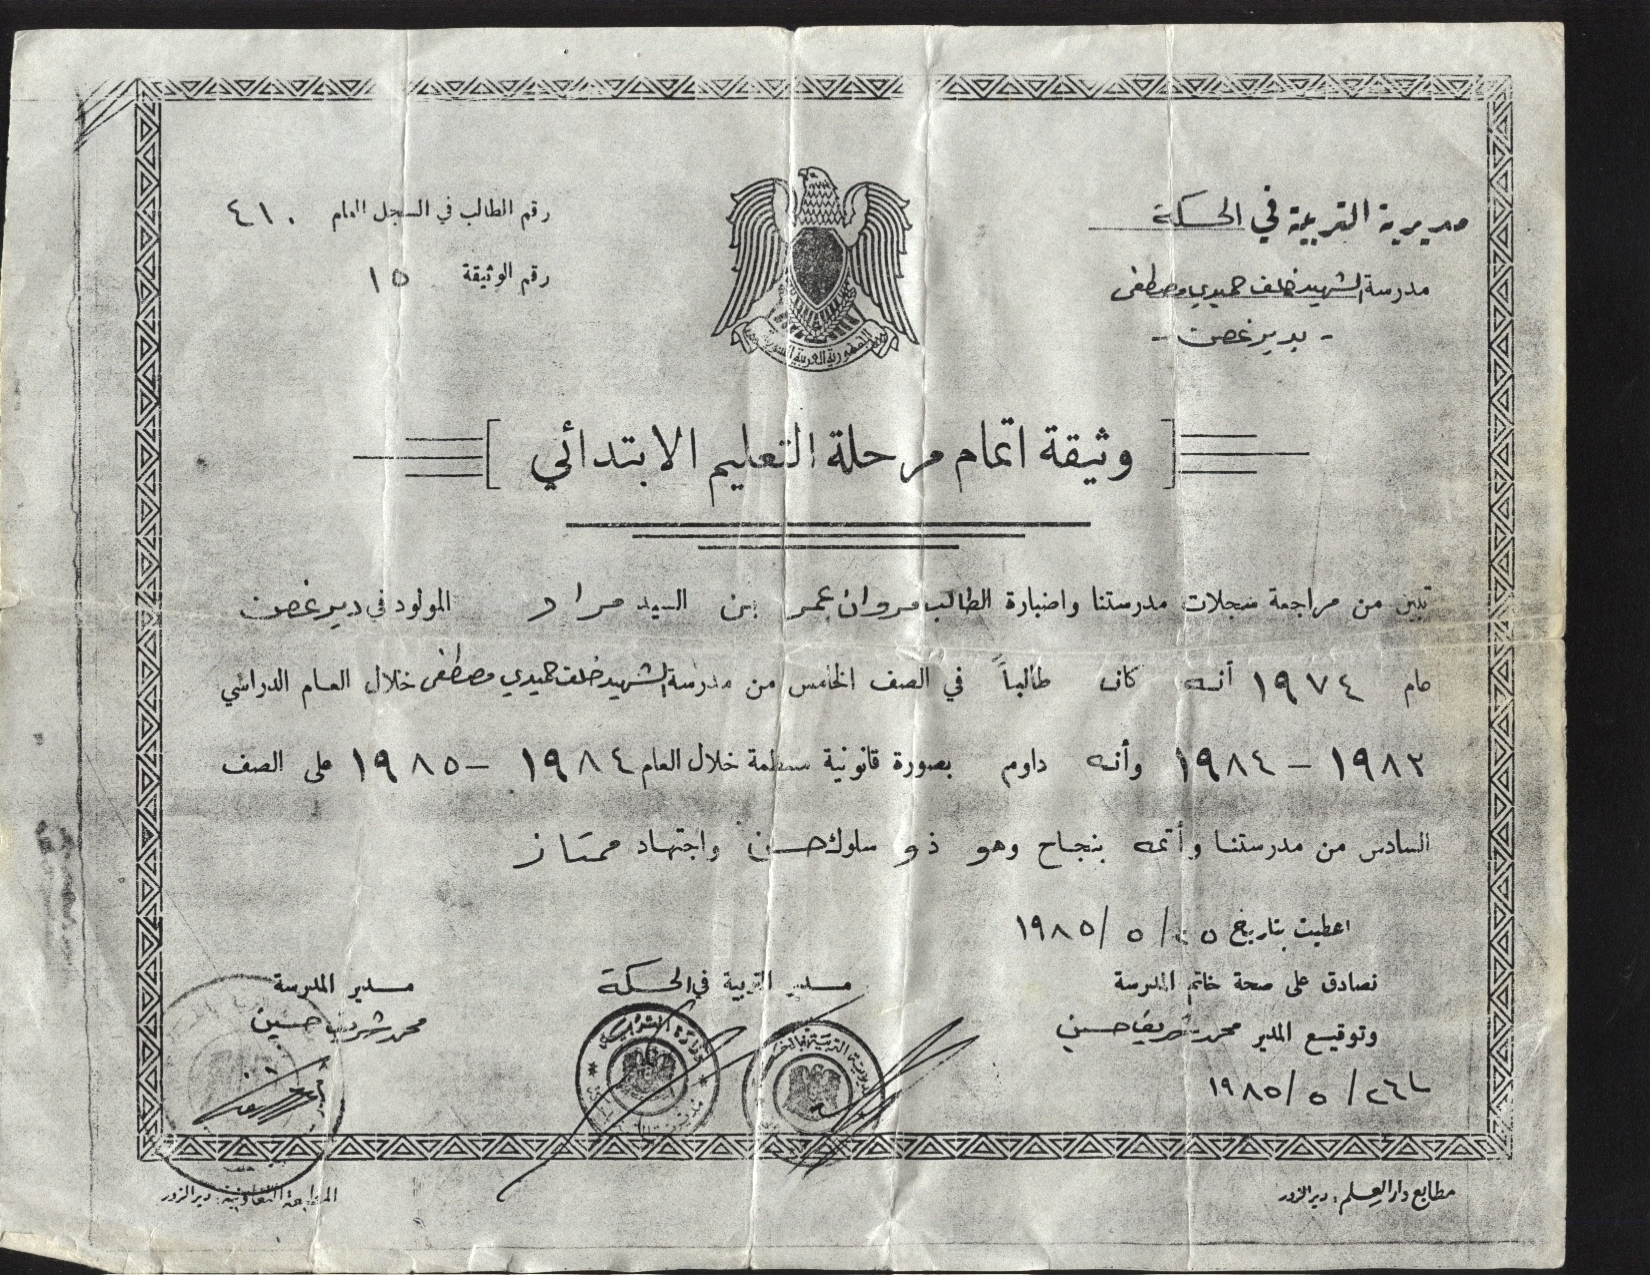 مديرية التربية في الحسكة
مدرسة الشهيد خلف حميدي مصطفى
- بدير غصن -
رقم الطالب في السجل العام ٤١٠
رقم الوثيقة ١٥
الجمهورية العربية السورية
[ وثيقة اتمام مرحلة التعليم الابتدائي ]
تبين من مراجعة سجلات مدرستنا واضبارة الطالب مروان عمر بن السيد مراد المولود في دير غصن
عام ١٩٧٤ أنه كان طالباً في الصف الخامس من مدرسة الشهيد خلف حميدي مصطفى خلال العام الدراسي
١٩٨٣ - ١٩٨٤ وأنه داوم بصورة قانونية منتظمة خلال العام ١٩٨٤ - ١٩٨٥ على الصف
السادس من مدرستنا وأتمه بنجاح وهو ذو سلوك حسن واجتهاد ممتاز
اعطيت بتاريخ ٢٥ / ٥ / ١٩٨٥
نصادق على صحة خاتم المدرسة
وتوقيع المدير محمد شريف حسين
٢٦ / ٥ / ١٩٨٥
مدير التربية في الحسكة
وزارة التربية
مديرية التربية بالحسكة
مدير المدرسة
محمد شريف حسين
مطابع دار العلم : دير الزور
المطبعة التعاونية : دير الزور